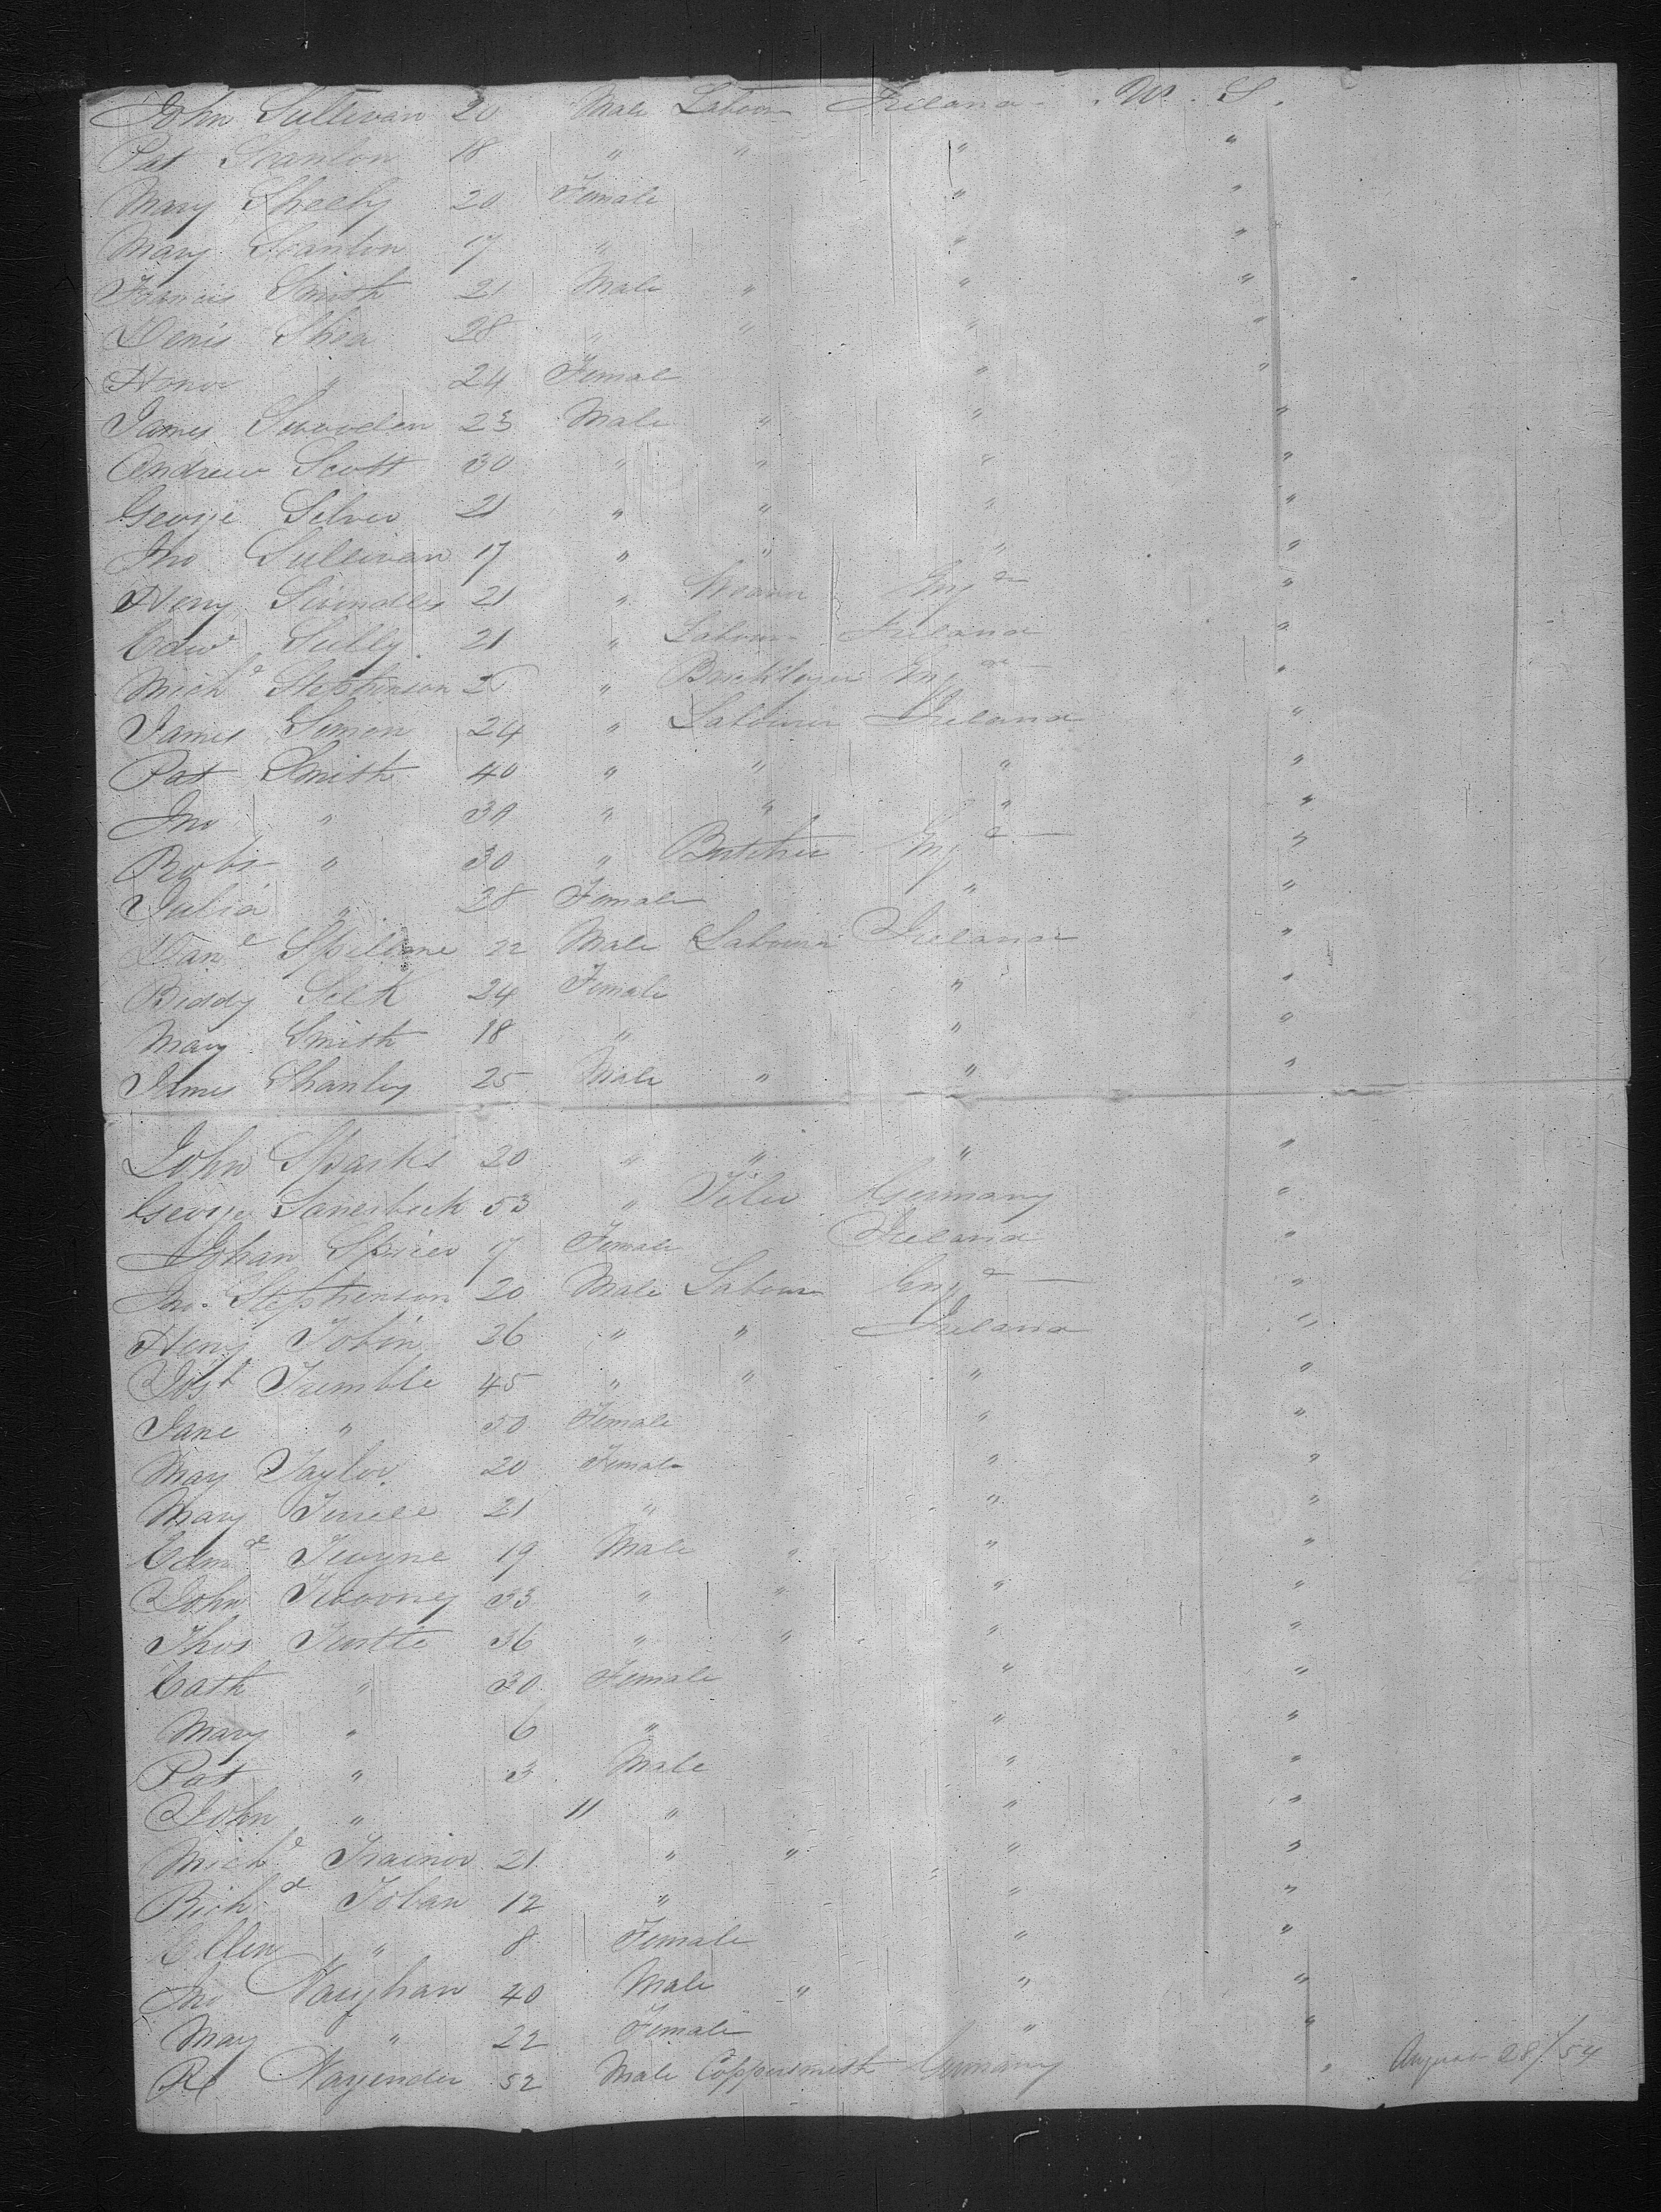 John Sullivan 20 Male Labour Ireland U. S.
Pat Scanlon 18 " " " "
Mary Sheehy 20 Female " "
Mary Scanlon 17 " " "
Francis Smith 21 Male " " "
Denis Shea 28 " " " "
Honor " 24 Female " "
James 23 Male " " "
Andrew Scott 30 " " " "
George Silver 21 " " " "
Jno Sullivan 17 " " " "
Henry Swindles 21 " Weaver Engd "
Edwd Sully 21 " Labour Ireland "
Michl Stephenson " Bricklayer Engd "
James Simon 24 " Labourer Ireland "
Pat Smith 40 " " " "
Jno " 30 " " " "
Robt " 30 " Butcher Engd "
Julia " 28 Female " "
Danl Spillane 22 Male Labourer Ireland "
Biddy Silk 24 Female " "
Mary Smith 18 " " "
James Shanley 25 Male " " "
John Sparks 20 " " " "
George 53 " Tiler Germany "
Johan Spicer 17 Female Ireland "
Jno. Stephenson 20 Male Labour Engd "
Henry Tobin 26 " " Ireland "
Josh Trimble 45 " " " "
Jane " 50 Female " "
Mary Taylor 20 Female " "
Mary 21 " " "
Edmd Twyne 19 Male " " "
John 33 " " " "
Thos 36 " " " "
Cath " 30 Female " "
Mary " 6 " " "
Pat " 3 Male " "
John " 11 " " "
Michl Trainor 21 " " " "
Richd Toban 12 " " "
Ellen " 8 Female " "
Jno Vaughan 40 Male " " "
Mary " 22 Female " "
52 Male Coppersmith Germany " August 28/54